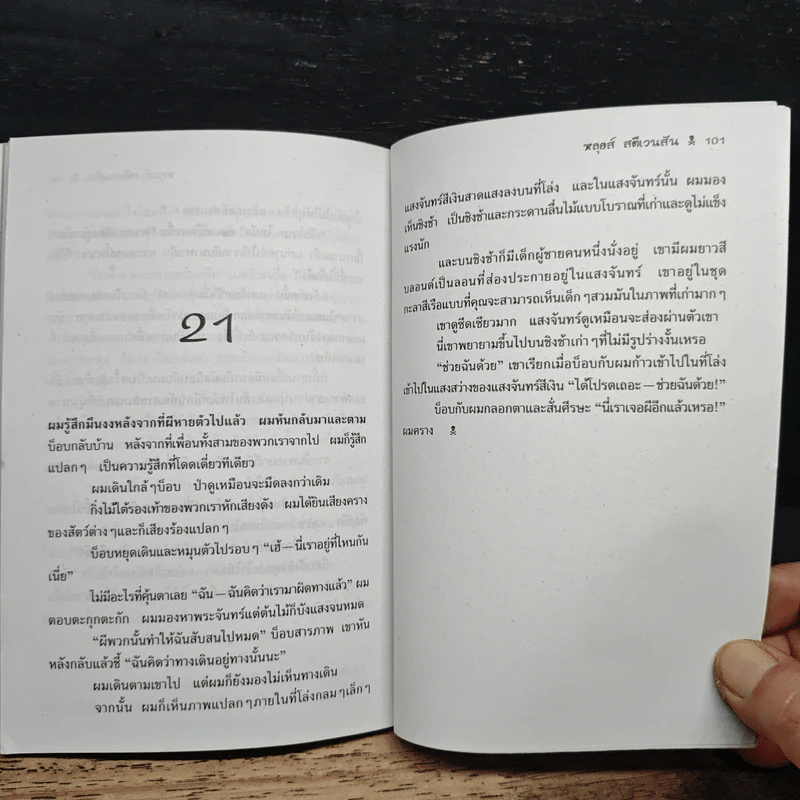 21
ผมรู้สึกมึนงงหลังจากที่ผีหายตัวไปแล้ว ผมหันกลับมาและตาม
บ็อบกลับบ้าน หลังจากที่เพื่อนทั้งสามของพวกเราจากไป ผมก็รู้สึก
แปลกๆ เป็นความรู้สึกที่โดดเดี่ยวทีเดียว
ผมเดินใกล้ๆบ็อบ ป่าดูเหมือนจะมืดลงกว่าเดิม
กิ่งไม้ใต้รองเท้าของพวกเราหักเสียงดัง ผมได้ยินเสียงคราง
ของสัตว์ต่างๆและก็เสียงร้องแปลกๆ
บ็อบหยุดเดินและหมุนตัวไปรอบๆ “เฮ้—นี่เราอยู่ที่ไหนกัน
เนี่ย”
ไม่มีอะไรที่คุ้นตาเลย “ฉัน—ฉันคิดว่าเรามาผิดทางแล้ว” ผม
ตอบตะกุกตะกัก ผมมองหาพระจันทร์แต่ต้นไม้ก็บังแสงจนหมด
“ผีพวกนั้นทำให้ฉันสับสนไปหมด” บ็อบสารภาพ เขาหัน
หลังกลับแล้วชี้ “ฉันคิดว่าทางเดินอยู่ทางนั้นนะ”
ผมเดินตามเขาไป แต่ผมก็ยังมองไม่เห็นทางเดิน
จากนั้น ผมก็เห็นภาพแปลกๆภายในที่โล่งกลมๆเล็กๆ
หลุยส์ สตีเวนสัน 101
แสงจันทร์สีเงินสาดแสงลงบนที่โล่ง และในแสงจันทร์นั้น ผมมอง
เห็นชิงช้า เป็นชิงช้าและกระดานลื่นไม้แบบโบราณที่เก่าและดูไม่แข็ง
แรงนัก
และบนชิงช้าก็มีเด็กผู้ชายคนหนึ่งนั่งอยู่ เขามีผมยาวสี
บลอนด์เป็นลอนที่ส่องประกายอยู่ในแสงจันทร์ เขาอยู่ในชุด
กะลาสีเรือแบบที่คุณจะสามารถเห็นเด็กๆสวมมันในภาพที่เก่ามากๆ
เขาดูซีดเซียวมาก แสงจันทร์ดูเหมือนจะส่องผ่านตัวเขา
นี่เขาพยายามขึ้นไปบนชิงช้าเก่าๆที่ไม่มีรูปร่างงั้นเหรอ
“ช่วยฉันด้วย” เขาเรียกเมื่อบ็อบกับผมก้าวเข้าไปในที่โล่ง
เข้าไปในแสงสว่างของแสงจันทร์สีเงิน “ได้โปรดเถอะ—ช่วยฉันด้วย!”
บ็อบกับผมกลอกตาและสั่นศีรษะ “นี่เราเจอผีอีกแล้วเหรอ!”
ผมคราง